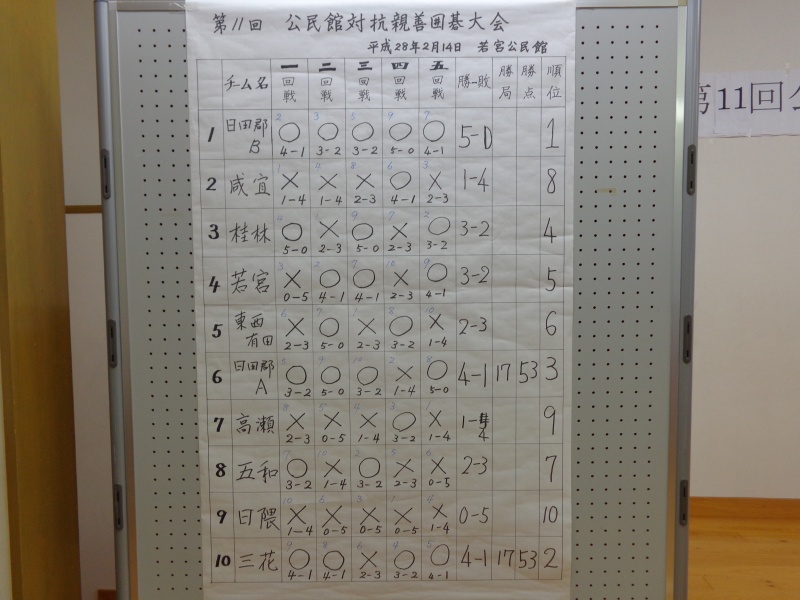 第11回 公民館対抗親善囲碁大会
平成28年2月14日 若宮公民館
チーム名 一回戦 二回戦 三回戦 四回戦 五回戦 勝-敗 勝局 勝点 順位
1 日田郡B ○4-1 ○3-2 ○3-2 ○5-0 ○4-1 5-0 1
2 咸宜 ×1-4 ×1-4 ×2-3 ○4-1 ×2-3 1-4 8
3 桂林 ○5-0 ×2-3 ○5-0 ×2-3 ○3-2 3-2 4
4 若宮 ×0-5 ○4-1 ○4-1 ×2-3 ○4-1 3-2 5
5 東西有田 ×2-3 ○5-0 ×2-3 ○3-2 ×1-4 2-3 6
6 日田郡A ○3-2 ○5-0 ○3-2 ×1-4 ○5-0 4-1 17 53 3
7 高瀬 ×2-3 ×0-5 ×1-4 ○3-2 ×1-4 1-4 9
8 五和 ○3-2 ×1-4 ○3-2 ×2-3 ×0-5 2-3 7
9 日隈 ×1-4 ×0-5 ×0-5 ×0-5 ×1-4 0-5 10
10 三花 ○4-1 ○4-1 ×2-3 ○3-2 ○4-1 4-1 17 53 2
第11回公